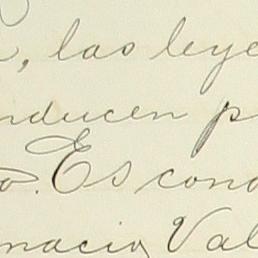 , las leye
nducen p
o. Es cond
nacio Val